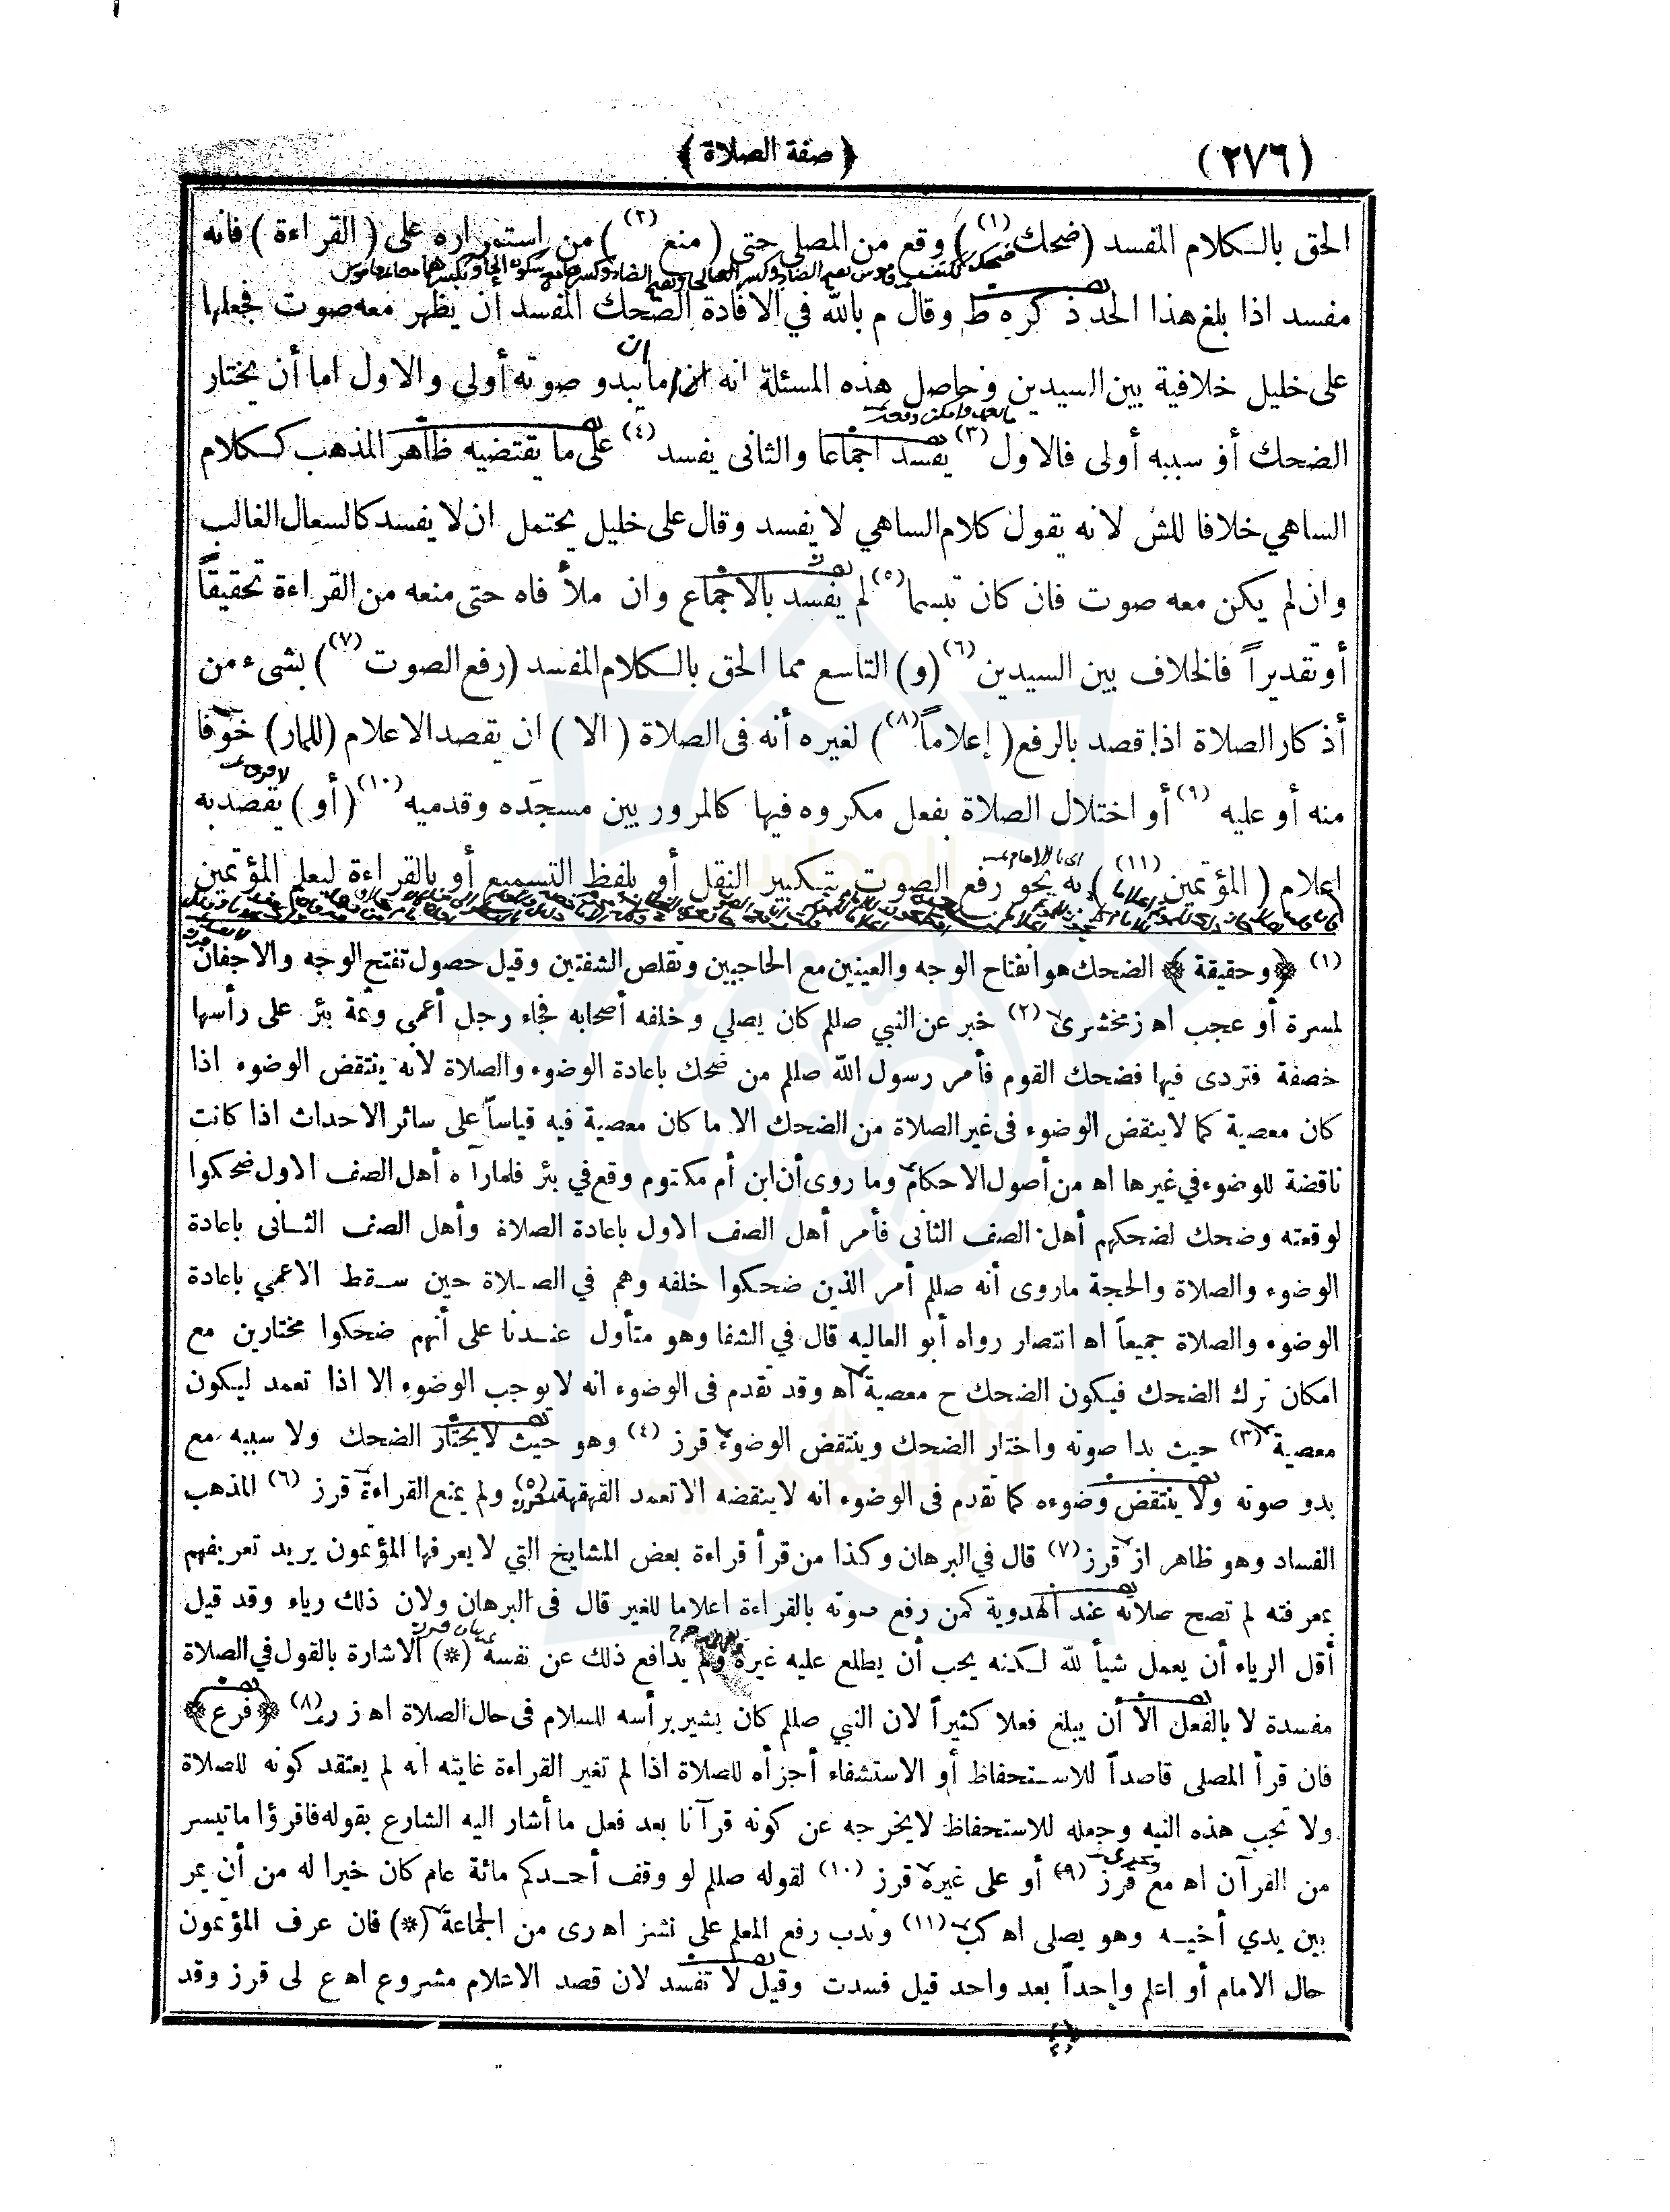 (٢٧٦) ﴿ صفة الصلاة ﴾
الحق بالكلام المفسد (ضحك (١)) وقع من المصلى حتى (منع (٢)) من استمراره على (القراءة) فانه
مفسد اذا بلغ هذا الحد ذكره ط وقال م بالله في الافادة الضحك المفسد ان يظهر معه صوت فجعلها
على خليل خلافية بين السيدين وحاصل هذه المسئلة انه ان ما يبدو صوته أولى والاول اما أن يختار
الضحك أو سببه أولى فالاول (٣) يفسد اجماعا والثانى يفسد (٤) على ما يقتضيه ظاهر المذهب ككلام
الساهي خلافا للش لانه يقول كلام الساهي لا يفسد وقال على خليل يحتمل ان لا يفسد كالسعال الغالب
وان لم يكن معه صوت فان كان تبسما (٥) لم يفسد بالاجماع وان ملأ فاه حتى منعه من القراءة تحقيقاً
أو تقديراً فالخلاف بين السيدين (٦) (و) التاسع مما الحق بالكلام المفسد (رفع الصوت (٧)) بشىء من
أذكار الصلاة اذا قصد بالرفع (إعلاماً (٨)) لغيره أنه فى الصلاة (الا) ان يقصد الاعلام (للمار) خوفا
منه أو عليه (٩) أو اختلال الصلاة بفعل مكروه فيها كالمرور بين مسجده وقدميه (١٠) (أو) يقصد به
اعلام (المؤتمين (١١)) به نحو رفع الصوت بتكبير النقل أو بلفظ التسميع أو بالقراءة ليعلم المؤتمين
(١) ﴿ وحقيقة ﴾ الضحك هو انفتاح الوجه والعينين مع الحاجبين وتقلص الشفتين وقيل حصول تفتح الوجه والاجفان
لمسرة أو عجب اه زمخشرى (٢) خبر عن النبي صللم كان يصلي وخلفه أصحابه فجاء رجل أعمى وثمة بئر على رأسها
خصفة فتردى فيها فضحك القوم فأمر رسول الله صللم من ضحك باعادة الوضوء والصلاة لأنه ينتقض الوضوء اذا
كان معصية كما لا ينقض الوضوء فى غير الصلاة من الضحك الا ما كان معصية فيه قياساً على سائر الاحداث اذا كانت
ناقضة للوضوء في غيرها اه من أصول الاحكام وما روى أن ابن أم مكتوم وقع في بئر فلما رآه أهل الصف الاول ضحكوا
لوقعته وضحك لضحكهم أهل الصف الثانى فأمر أهل الصف الاول باعادة الصلاة وأهل الصف الثانى باعادة
الوضوء والصلاة والحجة ماروى أنه صللم أمر الذين ضحكوا خلفه وهم في الصلاة حين سقط الاعمي باعادة
الوضوء والصلاة جميعاً اه انتصار رواه أبو العاليه قال في الشفا وهو متأول عندنا على أنهم ضحكوا مختارين مع
امكان ترك الضحك فيكون الضحك ح معصية اه وقد تقدم فى الوضوء انه لا يوجب الوضوء الا اذا تعمد ليكون
معصية (٣) حيث بدا صوته واختار الضحك وينتقض الوضوء قرز (٤) وهو حيث لا يختار الضحك ولا سببه مع
بدو صوته ولا ينتقض وضوءه كما تقدم فى الوضوء انه لا ينقضه الا تعمد القهقهة (٥) ولم يمنع القراءة قرز (٦) المذهب
الفساد وهو ظاهر از قرز (٧) قال في البرهان وكذا من قرأ قراءة بعض المشايخ التي لا يعرفها المؤتمون يريد تعريفهم
بمعرفته لم تصح صلاته عند الهدوية كمن رفع صوته بالقراءة اعلاما للغير قال فى البرهان ولان ذلك رياء وقد قيل
أقل الرياء أن يعمل شيأ لله لكنه يحب أن يطلع عليه غيره ولم يدافع ذلك عن نفسه (*) الاشارة بالقول في الصلاة
مفسدة لا بالفعل الا أن يبلغ فعلا كثيراً لان النبي صللم كان يشير برأسه للسلام فى حال الصلاة اه ز ر (٨) ﴿ فرع ﴾
فان قرأ المصلى قاصداً للاستحفاظ أو الاستشفاء أجزأه للصلاة اذا لم تغير القراءة غايته انه لم يعتقد كونه للصلاة
ولا تجب هذه النيه وجعله للاستحفاظ لا يخرجه عن كونه قرآنا بعد فعل ما أشار اليه الشارع بقوله فاقرؤا ما تيسر
من القرآن اه مع قرز (٩) أو على غيره قرز (١٠) لقوله صللم لو وقف أحدكم مائة عام كان خيرا له من أن يمر
بين يدي أخيه وهو يصلى اه كب (١١) وندب رفع المعلم على نشز اه رى من الجماعة (*) فان عرف المؤتمون
حال الامام أو اعلم واحداً بعد واحد قيل فسدت وقيل لا تفسد لان قصد الاعلام مشروع اه ع لى قرز وقد